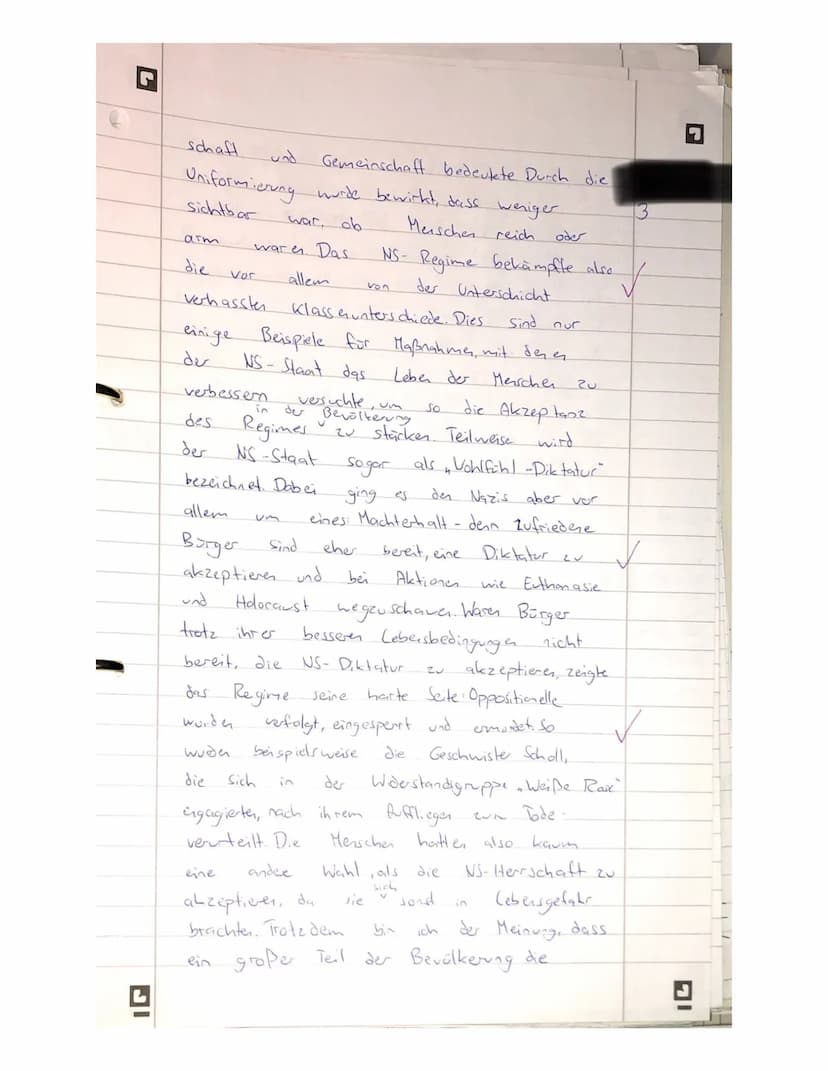 schaft und Gemeinschaft bedeutete Durch die
3
Uniformierung wurde bewirkt, dass weniger
sichtbar war, ob Menschen reich oder
arm waren Das NS-Regime bekämpfte also
die vor allem von der Unterschicht
verhassten Klassenunterschiede. Dies sind nur
einige Beispiele für Maßnahmen, mit denen
der NS-Staat das Leben der Menschen zu
verbessern versuchte, um so die Akzeptanz
in der Bevölkerung
des Regimes zu stärken. Teilweise wird
der NS-Staat sogar als „Wohlfühl-Diktatur"
bezeichnet. Dabei ging es den Nazis aber vor
allem um eines: Machterhalt - denn zufriedene
Bürger sind eher bereit, eine Diktatur zu
akzeptieren und bei Aktionen wie Euthanasie
und Holocaust wegzuschauen. Waren Bürger
trotz ihrer besseren Lebensbedingungen nicht
bereit, die NS-Diktatur zu akzeptieren, zeigte
das Regime seine harte Seite: Oppositionelle
wurden verfolgt, eingesperrt und ermordet. So
wurden beispielsweise die Geschwister Scholl,
die sich in der Widerstandsgruppe „Weiße Rose"
engagierten, nach ihrem Auffliegen zum Tode
verurteilt. Die Menschen hatten also kaum
eine andere Wahl, als die NS-Herrschaft zu
sich
akzeptieren, da sie sonst in Lebensgefahr
brachten. Trotzdem bin ich der Meinung, dass
ein großer Teil der Bevölkerung die